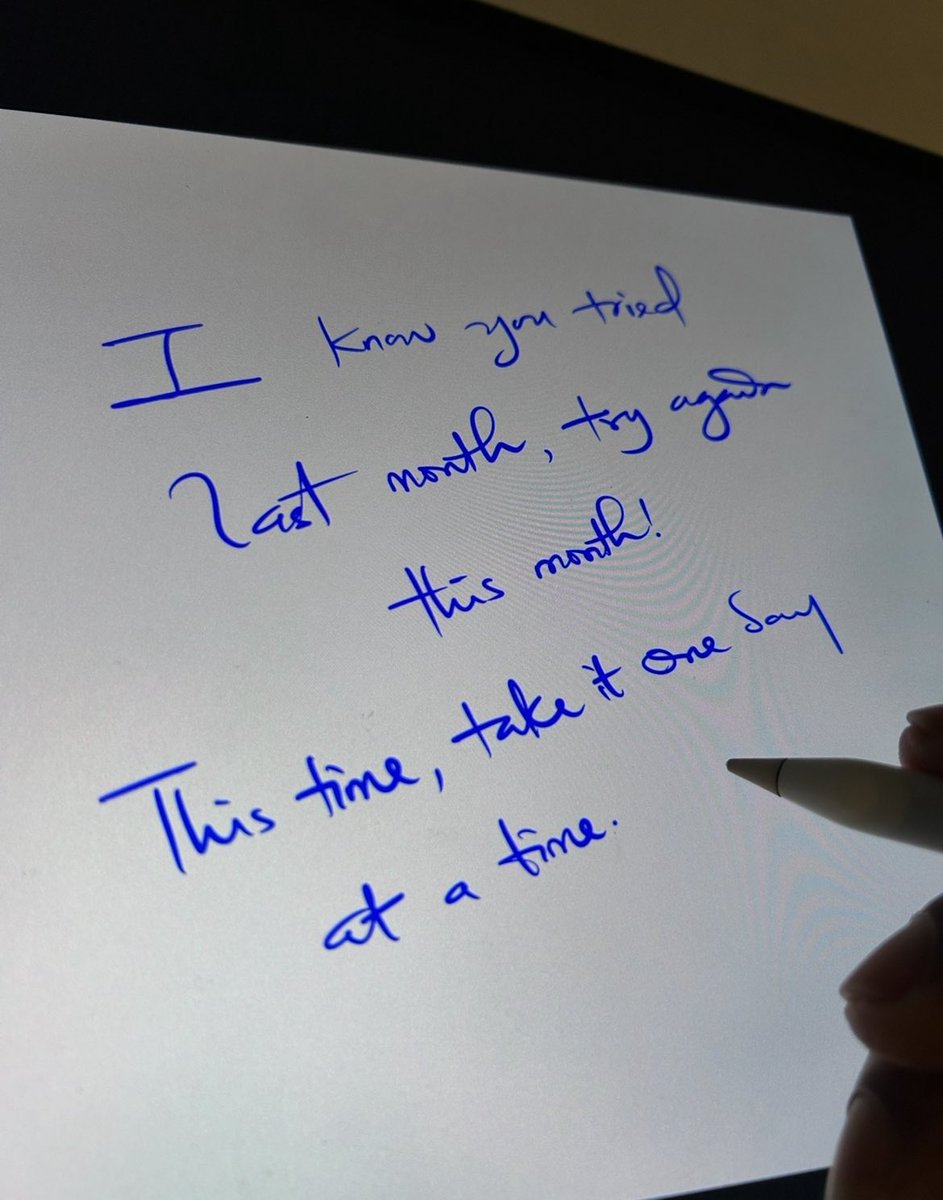 I know you tried
last month, try again
this month!
This time, take it one day
at a time.